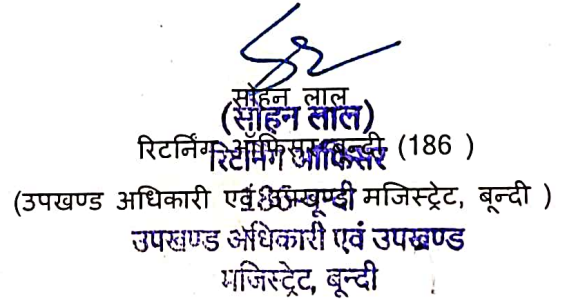 सोहन लाल
(सोहन लाल)
रिटर्निंग ऑफिसर बून्दी (186 )
रिटर्निंग ऑफिसर
(उपखण्ड अधिकारी एवं उपखण्ड मजिस्ट्रेट, बून्दी )
बून्दी
उपखण्ड अधिकारी एवं उपखण्ड
मजिस्ट्रेट, बून्दी